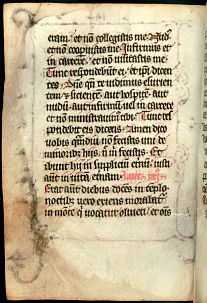 eram · et nō collegistis me Nud'
et nō cooꝑuistis me Infirmus et
in carcere · et nō uisitastis me
Tunc respondebūt ei · et ipi dicen
tes · Dn̄e qn̄ te uidimus esurien
tem · sicientē · aut hospitē · aut
nudū · aut infirmū uel in carcere
et nō ministrauim' tibi · Tunc res
pondebit eis dicens · Amen dico
vobis qm̄diu nō fecistis uni de
minorib; hijs · n̄ m̄ fecistis · Et
ibunt hij in suppliciū etnū · iusti
aut in uitā etnam ·
Erat aut dieb; docēs in templo
noctib; uero exiens morabat
in mōte q̄ uocatur oliueti · et oīs